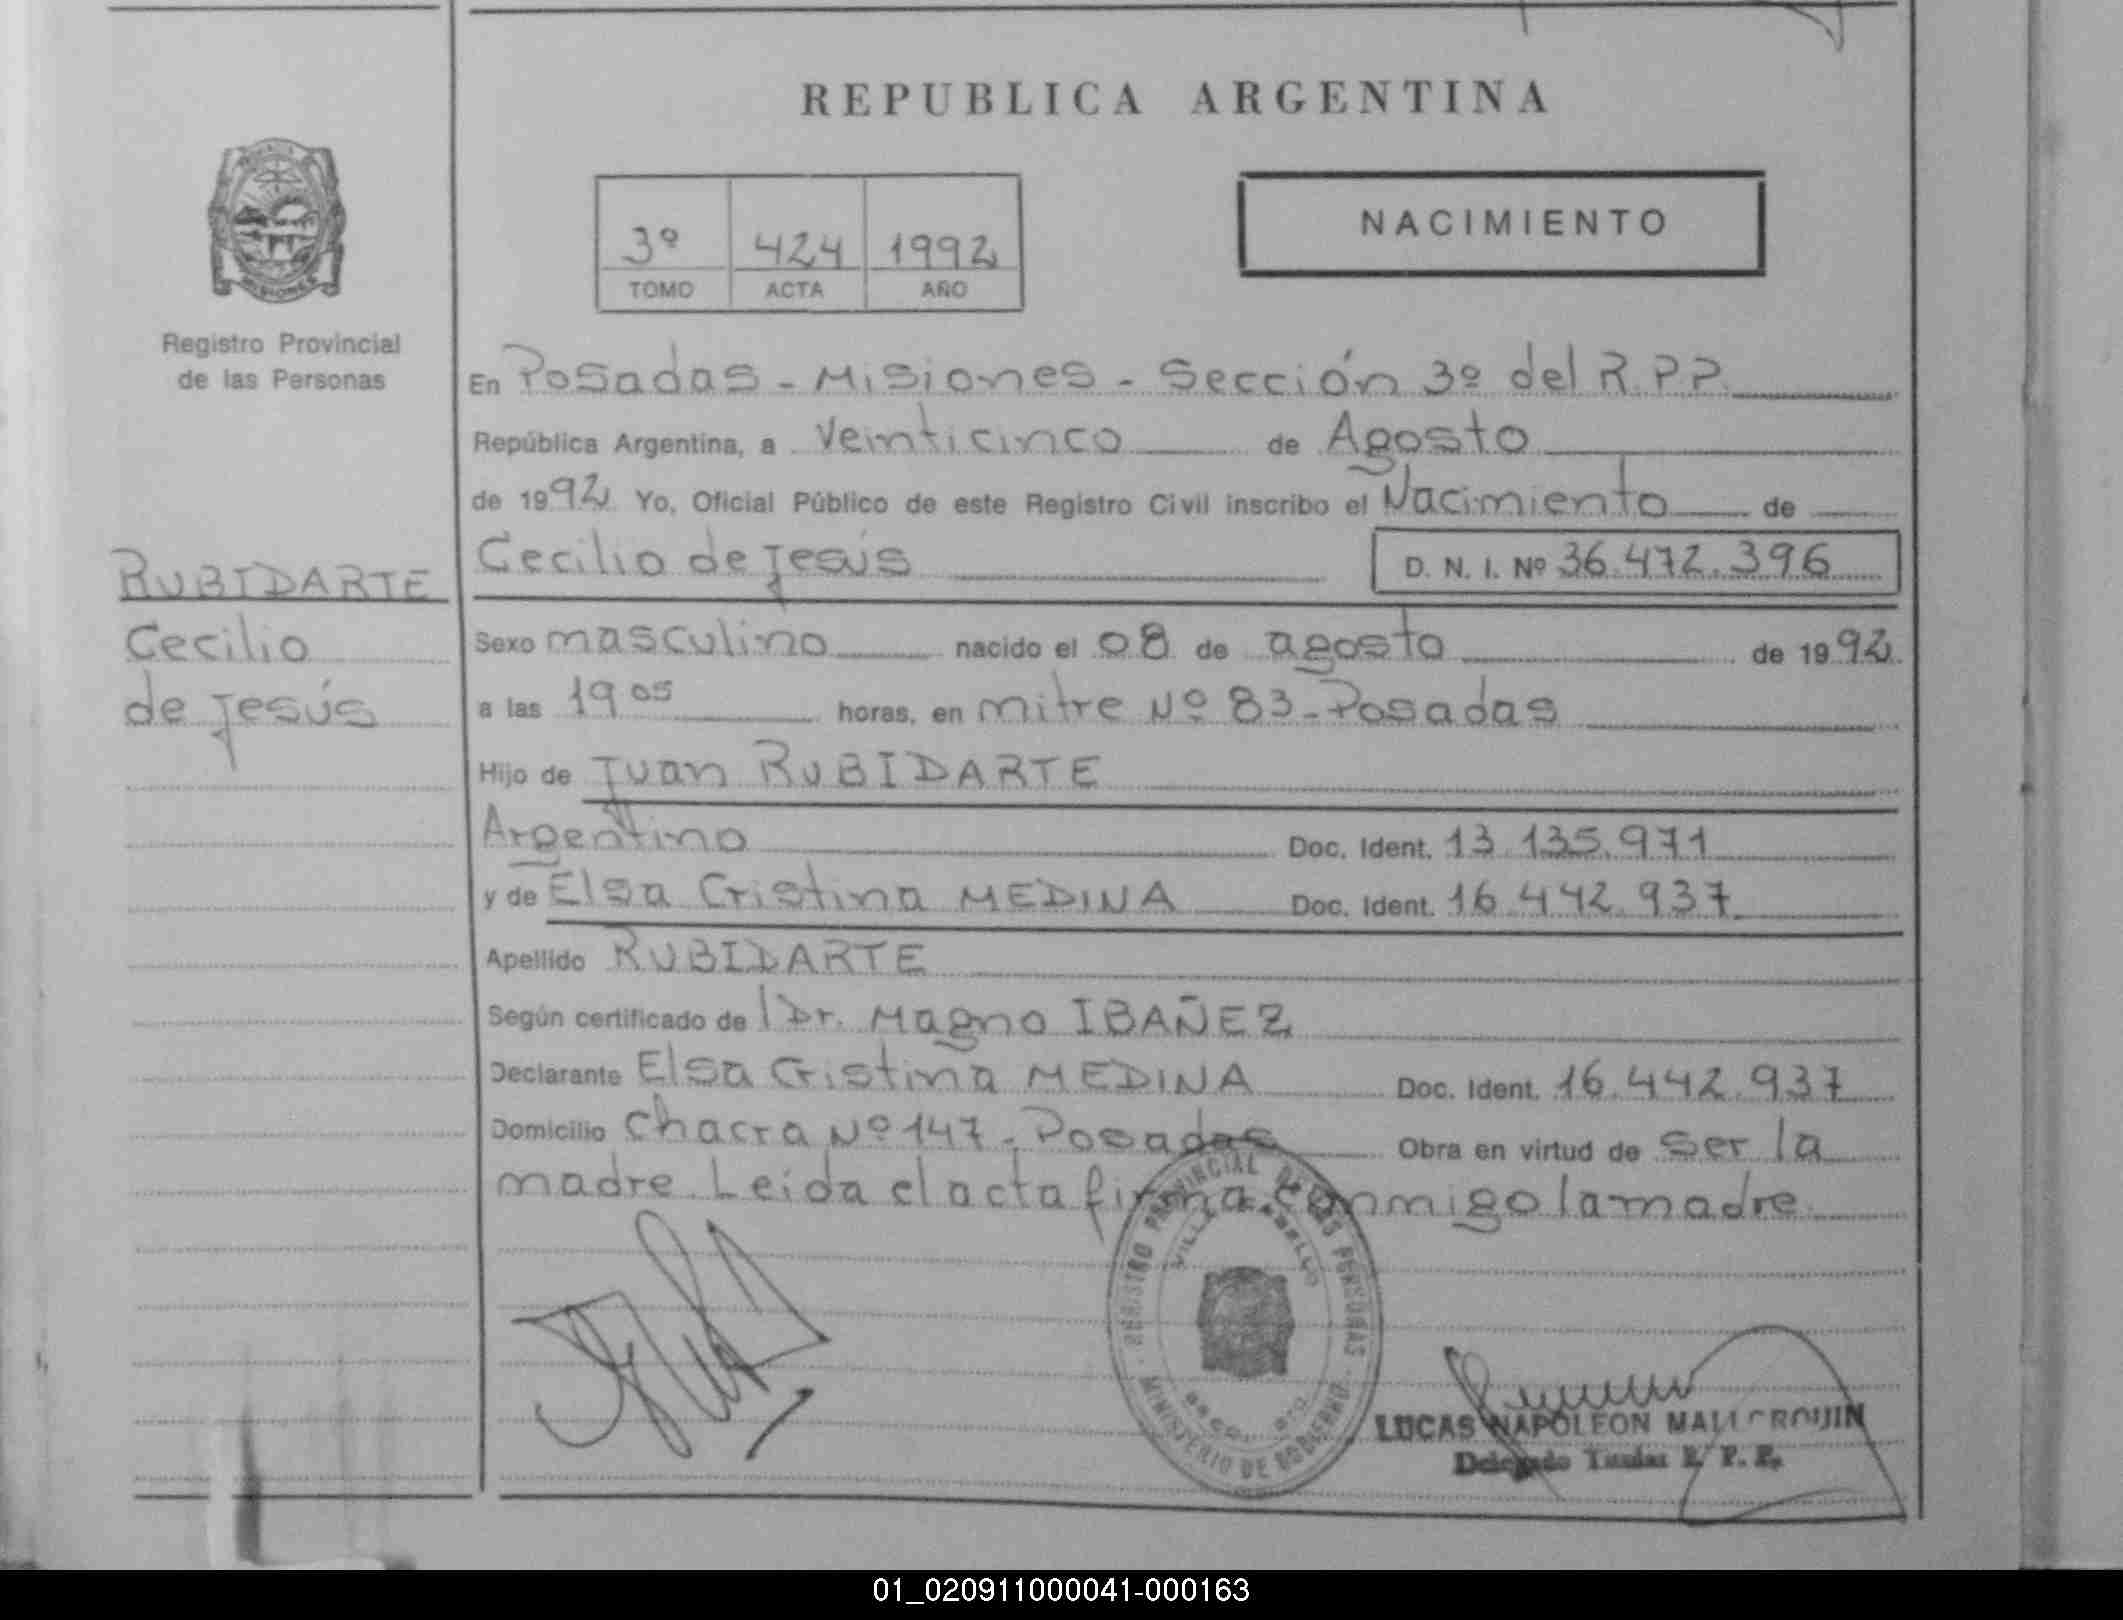 REPUBLICA ARGENTINA
NACIMIENTO
3º 424 1992
TOMO ACTA AÑO
Registro Provincial
de las Personas
En Posadas - Misiones - Sección 3º del R.P.P.
República Argentina, a Veinticinco de Agosto
de 1992 Yo, Oficial Público de este Registro Civil inscribo el Nacimiento de
Cecilio de Jesús D. N. I. Nº 36.472.396
RUBIDARTE
Cecilio
de Jesús
Sexo masculino nacido el 08 de agosto de 1992
a las 19 05 horas, en mitre Nº 83 - Posadas
Hijo de Juan RUBIDARTE
Argentino Doc. Ident. 13.135.971
y de Elsa Cristina MEDINA Doc. Ident. 16.442.937
Apellido RUBIDARTE
Según certificado de l Dr. Magno IBAÑEZ
Declarante Elsa Cristina MEDINA Doc. Ident. 16.442.937
Domicilio Chacra Nº 147 - Posadas Obra en virtud de ser la
madre. Leida el acta firma conmigo la madre.
REGISTRO PROVINCIAL DE LAS PERSONAS
VILLA CABELLO
MINISTERIO DE GOBIERNO
LUCAS NAPOLEON
Delegado Titular R. P. P.
01_020911000041-000163